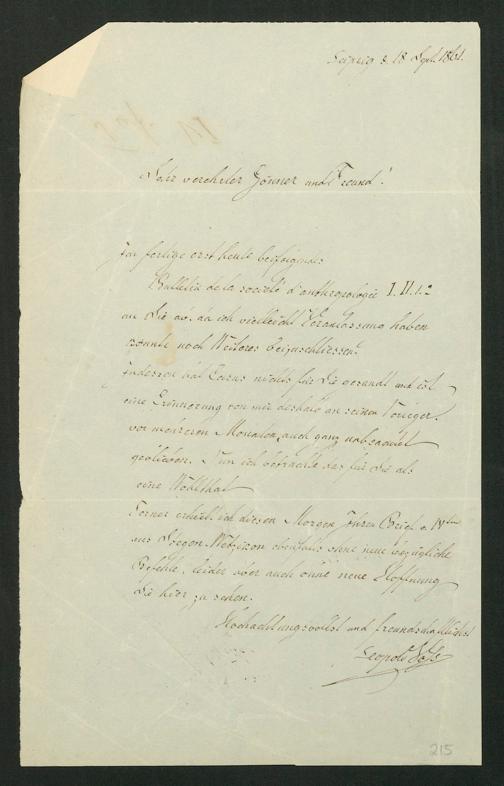 Leipzig d. 18 Sept. 1861.
Sehr verehrter Gönner und Freund!
Ich fertige erst heute beifolgendes
Bulletin de la société d'anthropologie I. II. 1.2
an Sie ab, da ich vielleicht Veranlassung haben
könnte noch Weiteres beizuschliessen.
Indessen hat nichts für Sie gesandt und ist
eine Erinnerung von mir deshalb an seinen
vor mehreren Monaten, auch ganz unbeachtet
geblieben. Nun ich betrachte das für Sie als
eine Wohlthat
Ferner erhielt ich diesen Morgen Ihren Brief v. 14ten
aus ebenfalls ohne neue bezügliche
Befehle, leider aber auch ohne neue Hoffnung
Sie hier zu sehen.
Hochachtungsvollst und freundschaftlichst
Leopold Voß
215